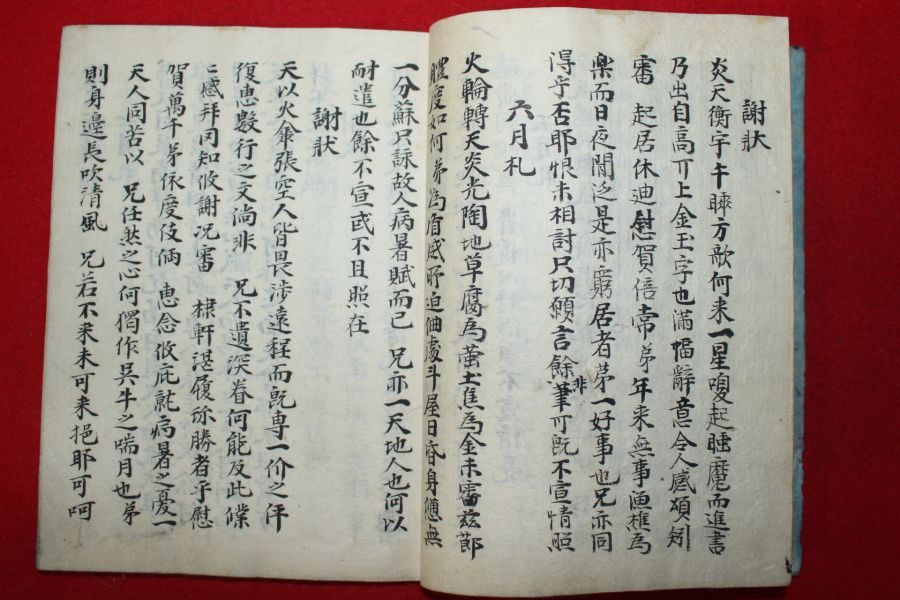 謝狀
炎天衡宇午 方歌何来一星嗄起睡魔而進書
乃出自高 上金玉字也滿幅辭意令人感頌 
審 起居休迪慰賀倍常弟年来無事漁樵為
樂而日夜閒泛是亦窮居者第一好事也兄亦同
得乎否耶恨未相討只切願言餘非筆可旣不宣情照
六月札
火輪轉天炎光陶地草腐為螢土焦為金未審玆節
體度如何弟為 炎 迫伷處斗屋日昏身憊無
一分蘇只詠故人病暑賦而已 兄亦一天地人也何以
耐遣也餘不宣或不且照在
謝狀
天以火傘張空人皆畏涉遠程而旣専一价之伻
復恵數行之文尚非 兄不遺深眷何能及此僕
〻感拜同知攸謝况審 棣軒湛履 勝者乎慰
賀萬千弟依度伎倆 恵念攸庇 病暑之憂一
天人同苦以 兄任然之心何獨作吳牛之喘月也弟
則身邊長吹清風 兄若不来未可来挹耶可呵